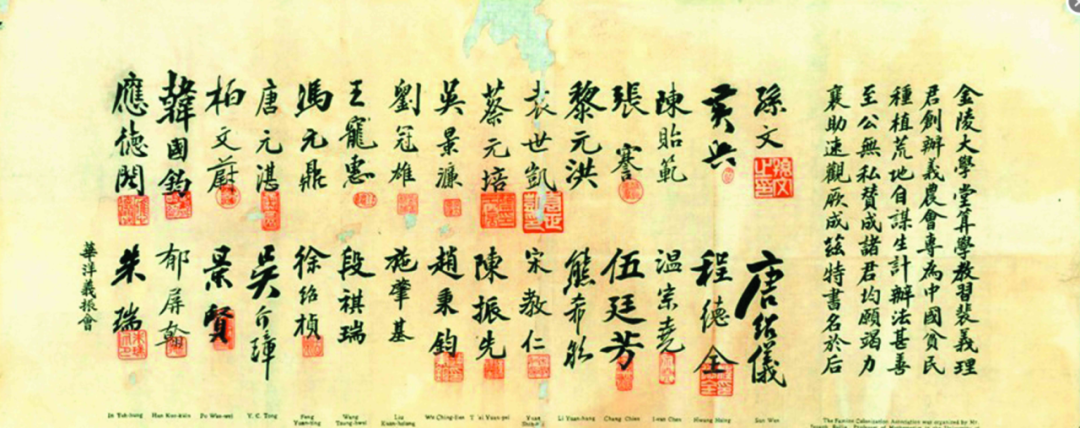 金陵大學堂算學教習裴義理
君創辦義農會專為中國貧民
種植荒地自謀生計辦法甚善
至公無私賛成諸君均願竭力
襄助速觀厥成茲特書名於后
孫文
黃興
陳貽範
張謇
黎元洪
袁世凱
蔡元培
吳景濂
劉冠雄
王寵惠
馮元鼎
唐元湛
柏文蔚
韓國鈞
應德閎
唐紹儀
程德全
温宗堯
伍廷芳
熊希齡
宋教仁
陳振先
趙秉鈞
施肇基
段祺瑞
徐紹楨
吳介璋
景賢
郁屏翰
朱瑞
華洋義振會
Y. C. Tong
Wu Ching-lien
Li Yuan-hung
Chang Chien
Hwang Hsing
Sun Wen
The Famine Colonization Association was organized by Mr.